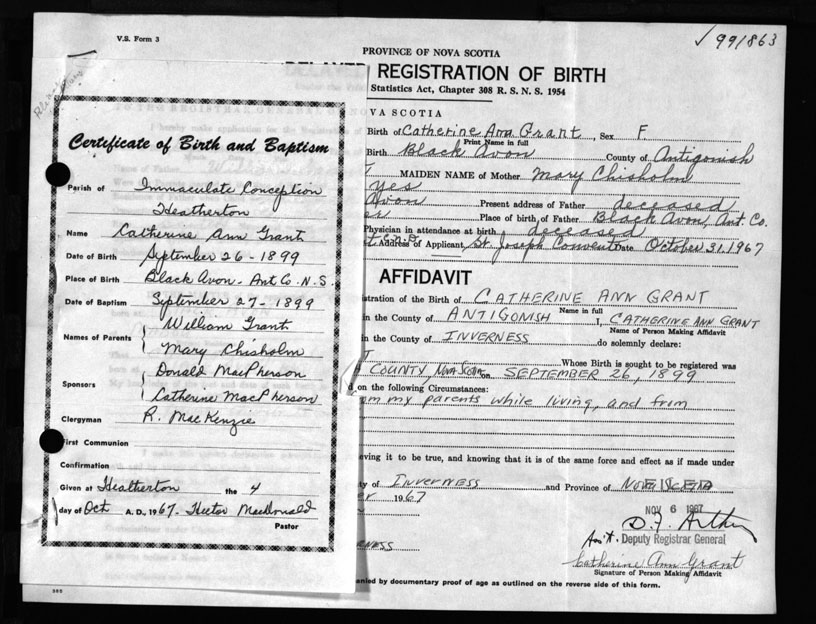 V.S. Form 3
99/863
PROVINCE OF NOVA SCOTIA
REGISTRATION OF BIRTH
Statistics Act, Chapter 308 R. S. N. S. 1954
Certificate of Birth and Baptism
Parish of Immaculate Conception
Heatherton
Name Catherine Ann Grant
Date of Birth September 26 - 1899
Place of Birth Black Avon - Ant Co. N.S.
Date of Baptism September 27 - 1899
Names of Parents William Grant
Mary Chisholm
Sponsors Donald MacPherson
Catherine MacPherson
Clergyman R. MacKenzie
First Communion
Confirmation
Given at Heatherton the 4
day of Oct A. D., 1967. Hector MacDonald
Pastor
NOVA SCOTIA
Birth of Catherine Ann Grant, Sex F
Print Name in full
Birth Black Avon County of Antigonish
MAIDEN NAME of Mother Mary Chisholm
yes
Avon Present address of Father deceased
Place of birth, of Father Black Avon, Ant. Co.
Physician in attendance at birth deceased
Address of Applicant, St. Joseph Convent Date October 31, 1967
AFFIDAVIT
istration of the Birth of CATHERINE ANN GRANT
Name in full
in the County of ANTIGONISH I, CATHERINE ANN GRANT
Name of Person Making Affidavit
in the County of INVERNESS do solemnly declare:
Whose Birth is sought to be registered was
COUNTY, Nova Scotia on SEPTEMBER 26, 1899
on the following Circumstances:
om my parents while living, and from
eving it to be true, and knowing that it is of the same force and effect as if made under
ty of INVERNESS and Province of NOVA SCOTIA
er 1967
NOV 6 1967
D. J. Arthur
Ass't. Deputy Registrar General
RNESS
Catherine Ann Grant
Signature of Person Making Affidavit
anied by documentary proof of age as outlined on the reverse side of this form.